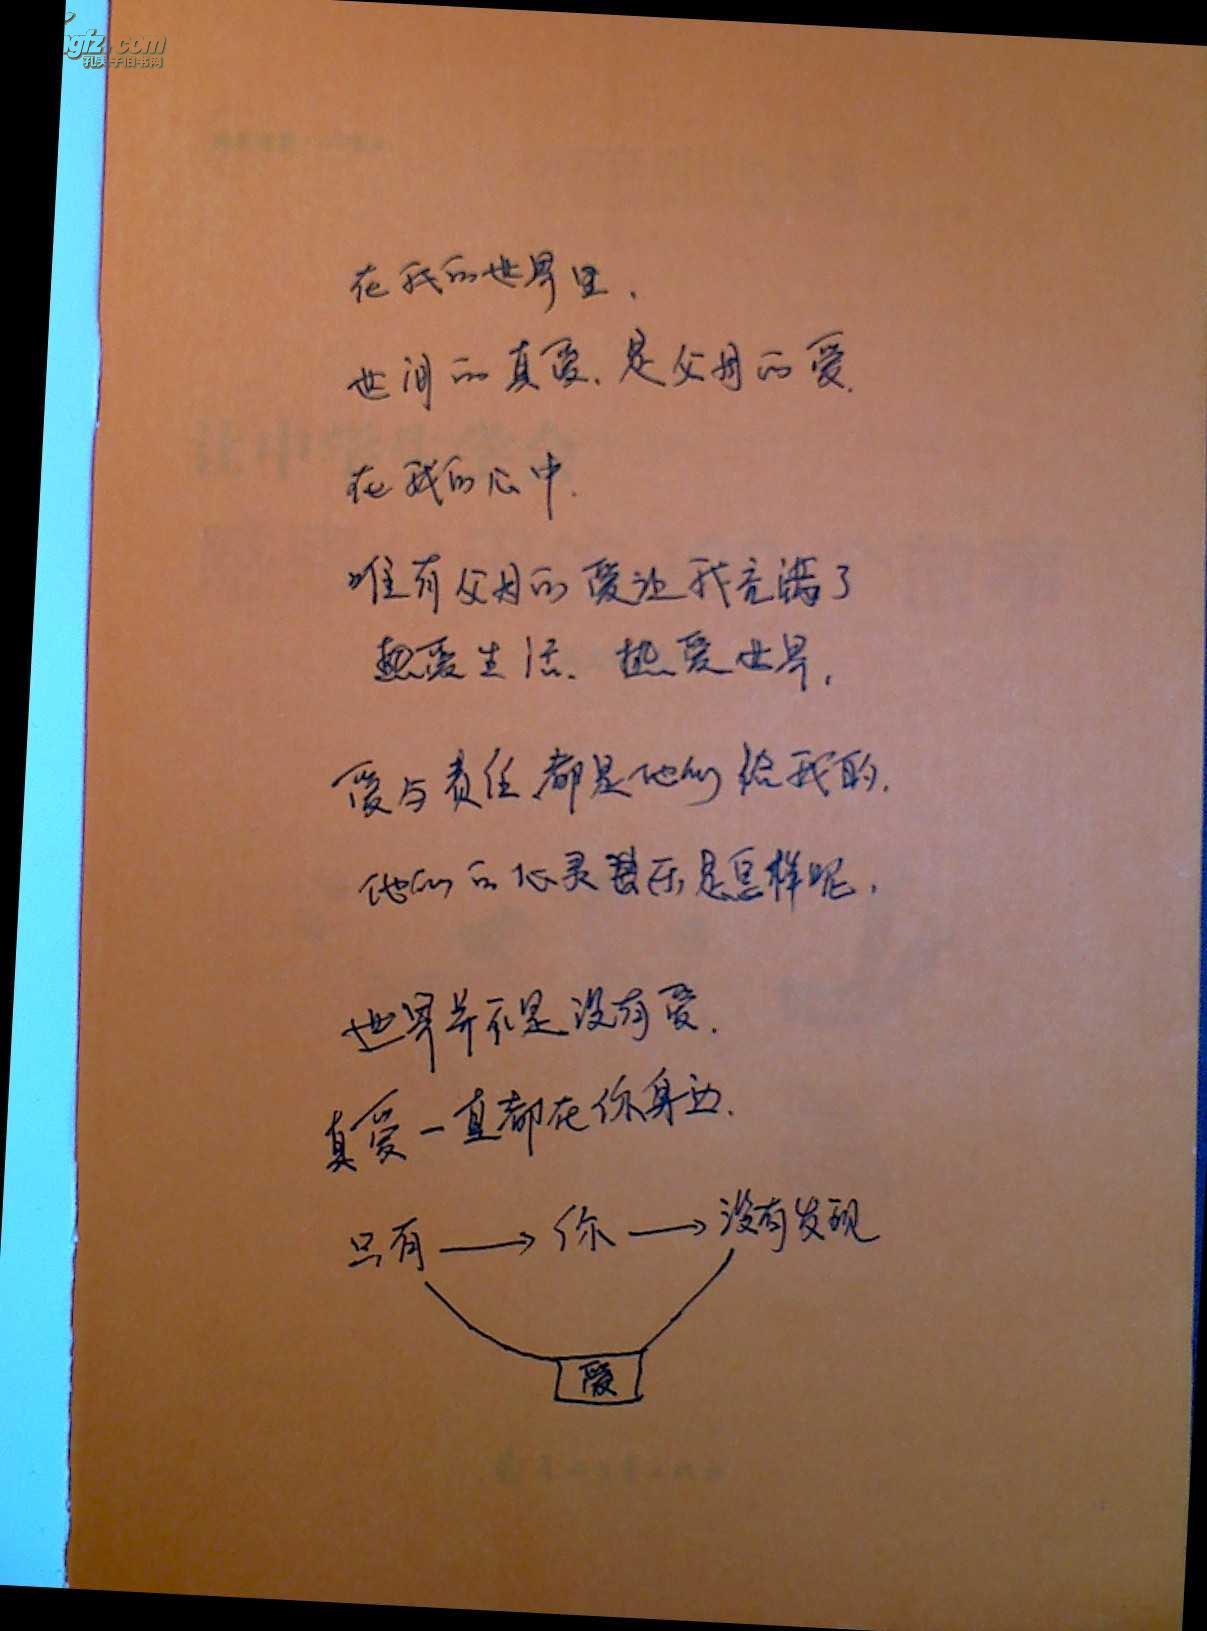 孔夫子旧书网
在我的世界里.
世间的真爱、是父母的爱.
在我的心中.
唯有父母的爱让我充满了
热爱生活、热爱世界,
爱与责任都是他们给我的.
他们的心灵音乐是怎样呢,
世界并不是没有爱.
真爱一直都在你身边.
只有 → 你 → 没有发现
爱